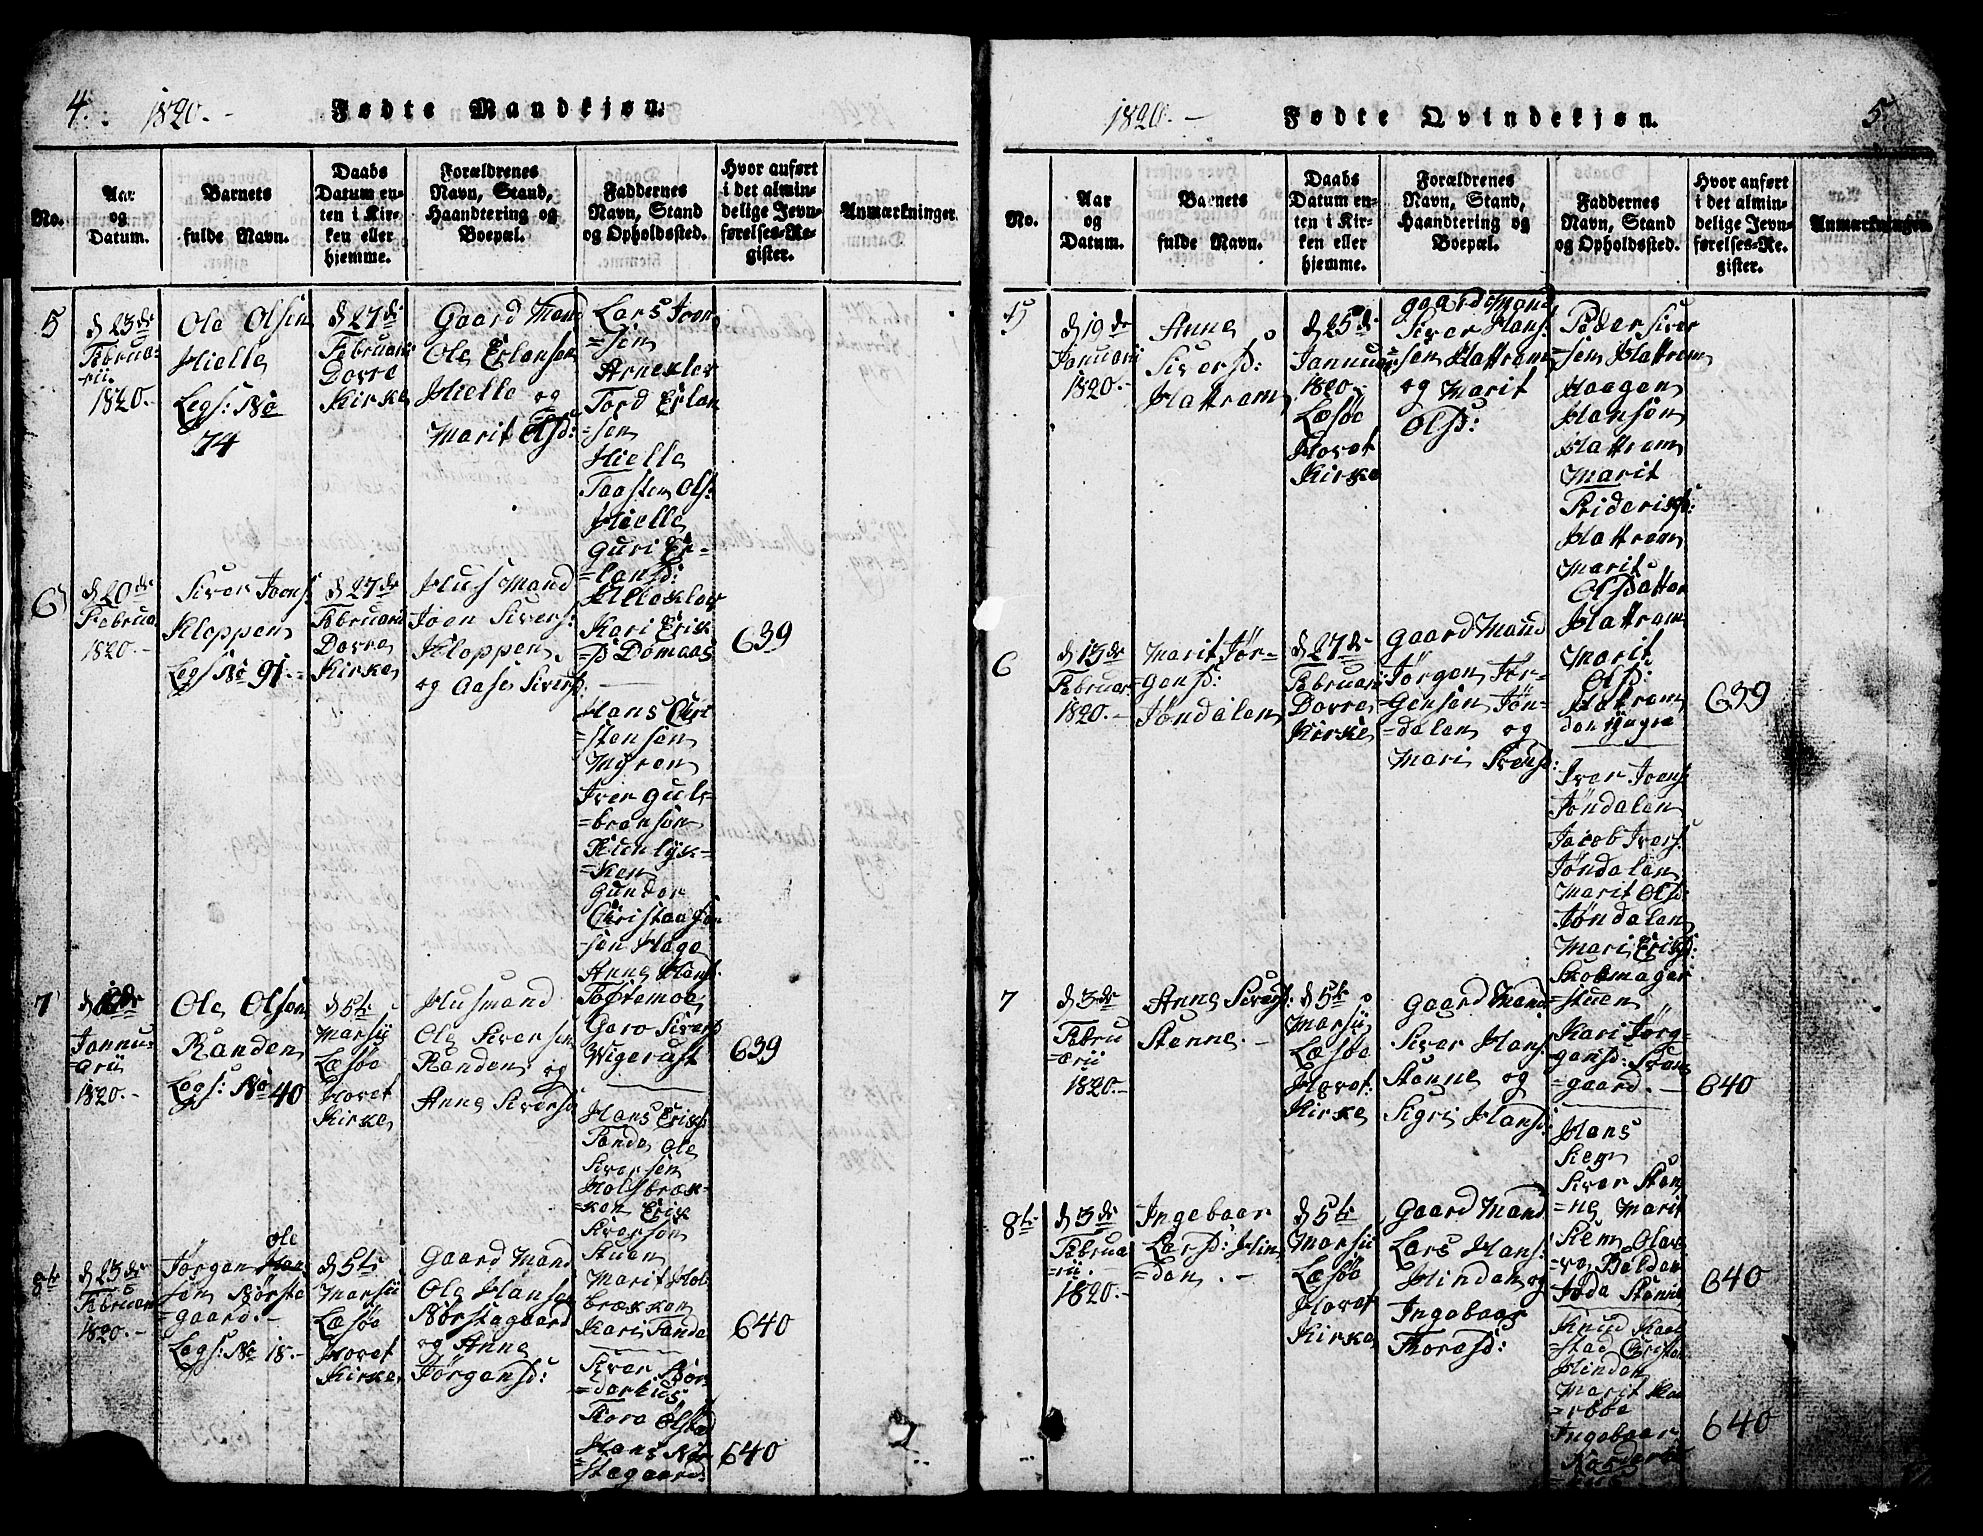 4. 1820. Fødte Mandkjøn.
No.
Aar og Datum.
Barnets fulde Navn.
Daabs Datum enten i Kirken eller hjemme.
Forældrenes Navn, Stand, Haandtering og Boepæl.
Faddernes Navn, Stand og Opholdssted.
Hvor anført i det almindelige Jevnførelses-Register.
Anmærkninger
5
d 23de
Februarii
1820.
Ole Olsen
Hielle
Legs: No
74
d 27de
Februarii
Dovre
Kirke
Gaard Mand
Ole Erlansen
Hielle og
Marit Olsd:
Lars Iven
=sen
Arneklev
Tord Erlan
=sen
Hielle
Taasten Ols:
Hielle
Guri Er=
lansd:
Killeklev
Kari Erik
=D Domaas
639
6
d 20de
Februa
1820.
Siver Joens
Kloppen
Legs No 91.
d 27de
Februarii
Dovre
Kirke
Huus Mand
Joen Sivers:
Kloppen
og Aase Siversd
Hans Chri
=stensen
Myren
Iver Gul=
=bransen
=ken
Gunder
=sen Hage
Anne Hans
Toftemoe
Garo Siversd
Wigerust
639
7
Jannu=
arii
1820.
Ole Olsen
Randen
Legs: No 40
d 5te
Martii
Læsøe
Hovet
Kirke
Husmand
Ole Siversen
Randen og
Anne Siversd
Hans Erik
Tande Ole
Siversen
Holsbræk=
=ken Erik
Siversen
Stuen
Marit Hol
brækken
Kari Tande
640
8de
d 23de
Februari
1820.
Ole
Jørgen Han
sen Nørste
=gaard.
Legs: No 18.
d 5te
Martii
Læsøe
Hovet
Kirke
Gaard Mand
Ole Hansen
Nørstegaard
og Anne
Jørgensd:
Siver Bjør
Tora Olstad
Hans Nør
stegaard:
640
1820. Fødte Qvindekjøn. 5
No.
Aar og Datum.
Barnets fulde Navn.
Daabs Datum enten i Kirken eller hjemme.
Forældrenes Navn, Stand, Haandtering og Boepæl.
Faddernes Navn, Stand og Opholdssted.
Hvor anført i det almindelige Jevnførelses-Register.
Anmærkninger.
5
d 19de
Januarii
1820.
Anne
Siversd:
Hattrem
d 25de
Januarii
1820
Læsøe
Hovet
Kirke
Gaard Mand
Siver Hans:
sen Hattrem
og Marit
Olsd:
Peder Siver
=sen Hattrem
Haagen
Hansen
Hattrem
Marit
Friderichsd:
Hattrem
Marit
Olsdatter
Hattrem
Marit
Olsd:
Hattrem
den yngre
639
6
d 13de
Februari
1820.
Marit Jør=
gensd:
Jøndalen
d 27de
Februarii
Dovre
Kirke
Gaard Mand
Jørgen Jør=
=gensen Jøn=
=dalen og
Mari Svensd:
Iver Joens
Jøndalen
Jacob Ivers:
Jøndalen
Marit Olsd:
Jøndalen
Mari Eriksd:
Skoemager
=stuen
Kari Jørg=
=gensd:
=gaard.
640
7
d 3de
Febru
=arii
1820.
Anne Siversd:
Stenne.
d 5te
Martii
Læsøe
Hovet
Kirke
Gaard Mand
Siver Hans
Stenne og
Sigri Hansd:
Hans
Kiem
Siver Sten
=ne Marit
Kiem
640
8de
d 3de
Februa
rii.
1820.
Ingebaar
Larsd: Hin
=den.
d 5te
Martii
Læsøe
Hovet
Kirke
Gaard Mand
Lars Hans:
Hinden og
Ingebaar
Thoresd:
Knud Kaal
=stad Christen
Hinden
Marit
Ingebaar
640